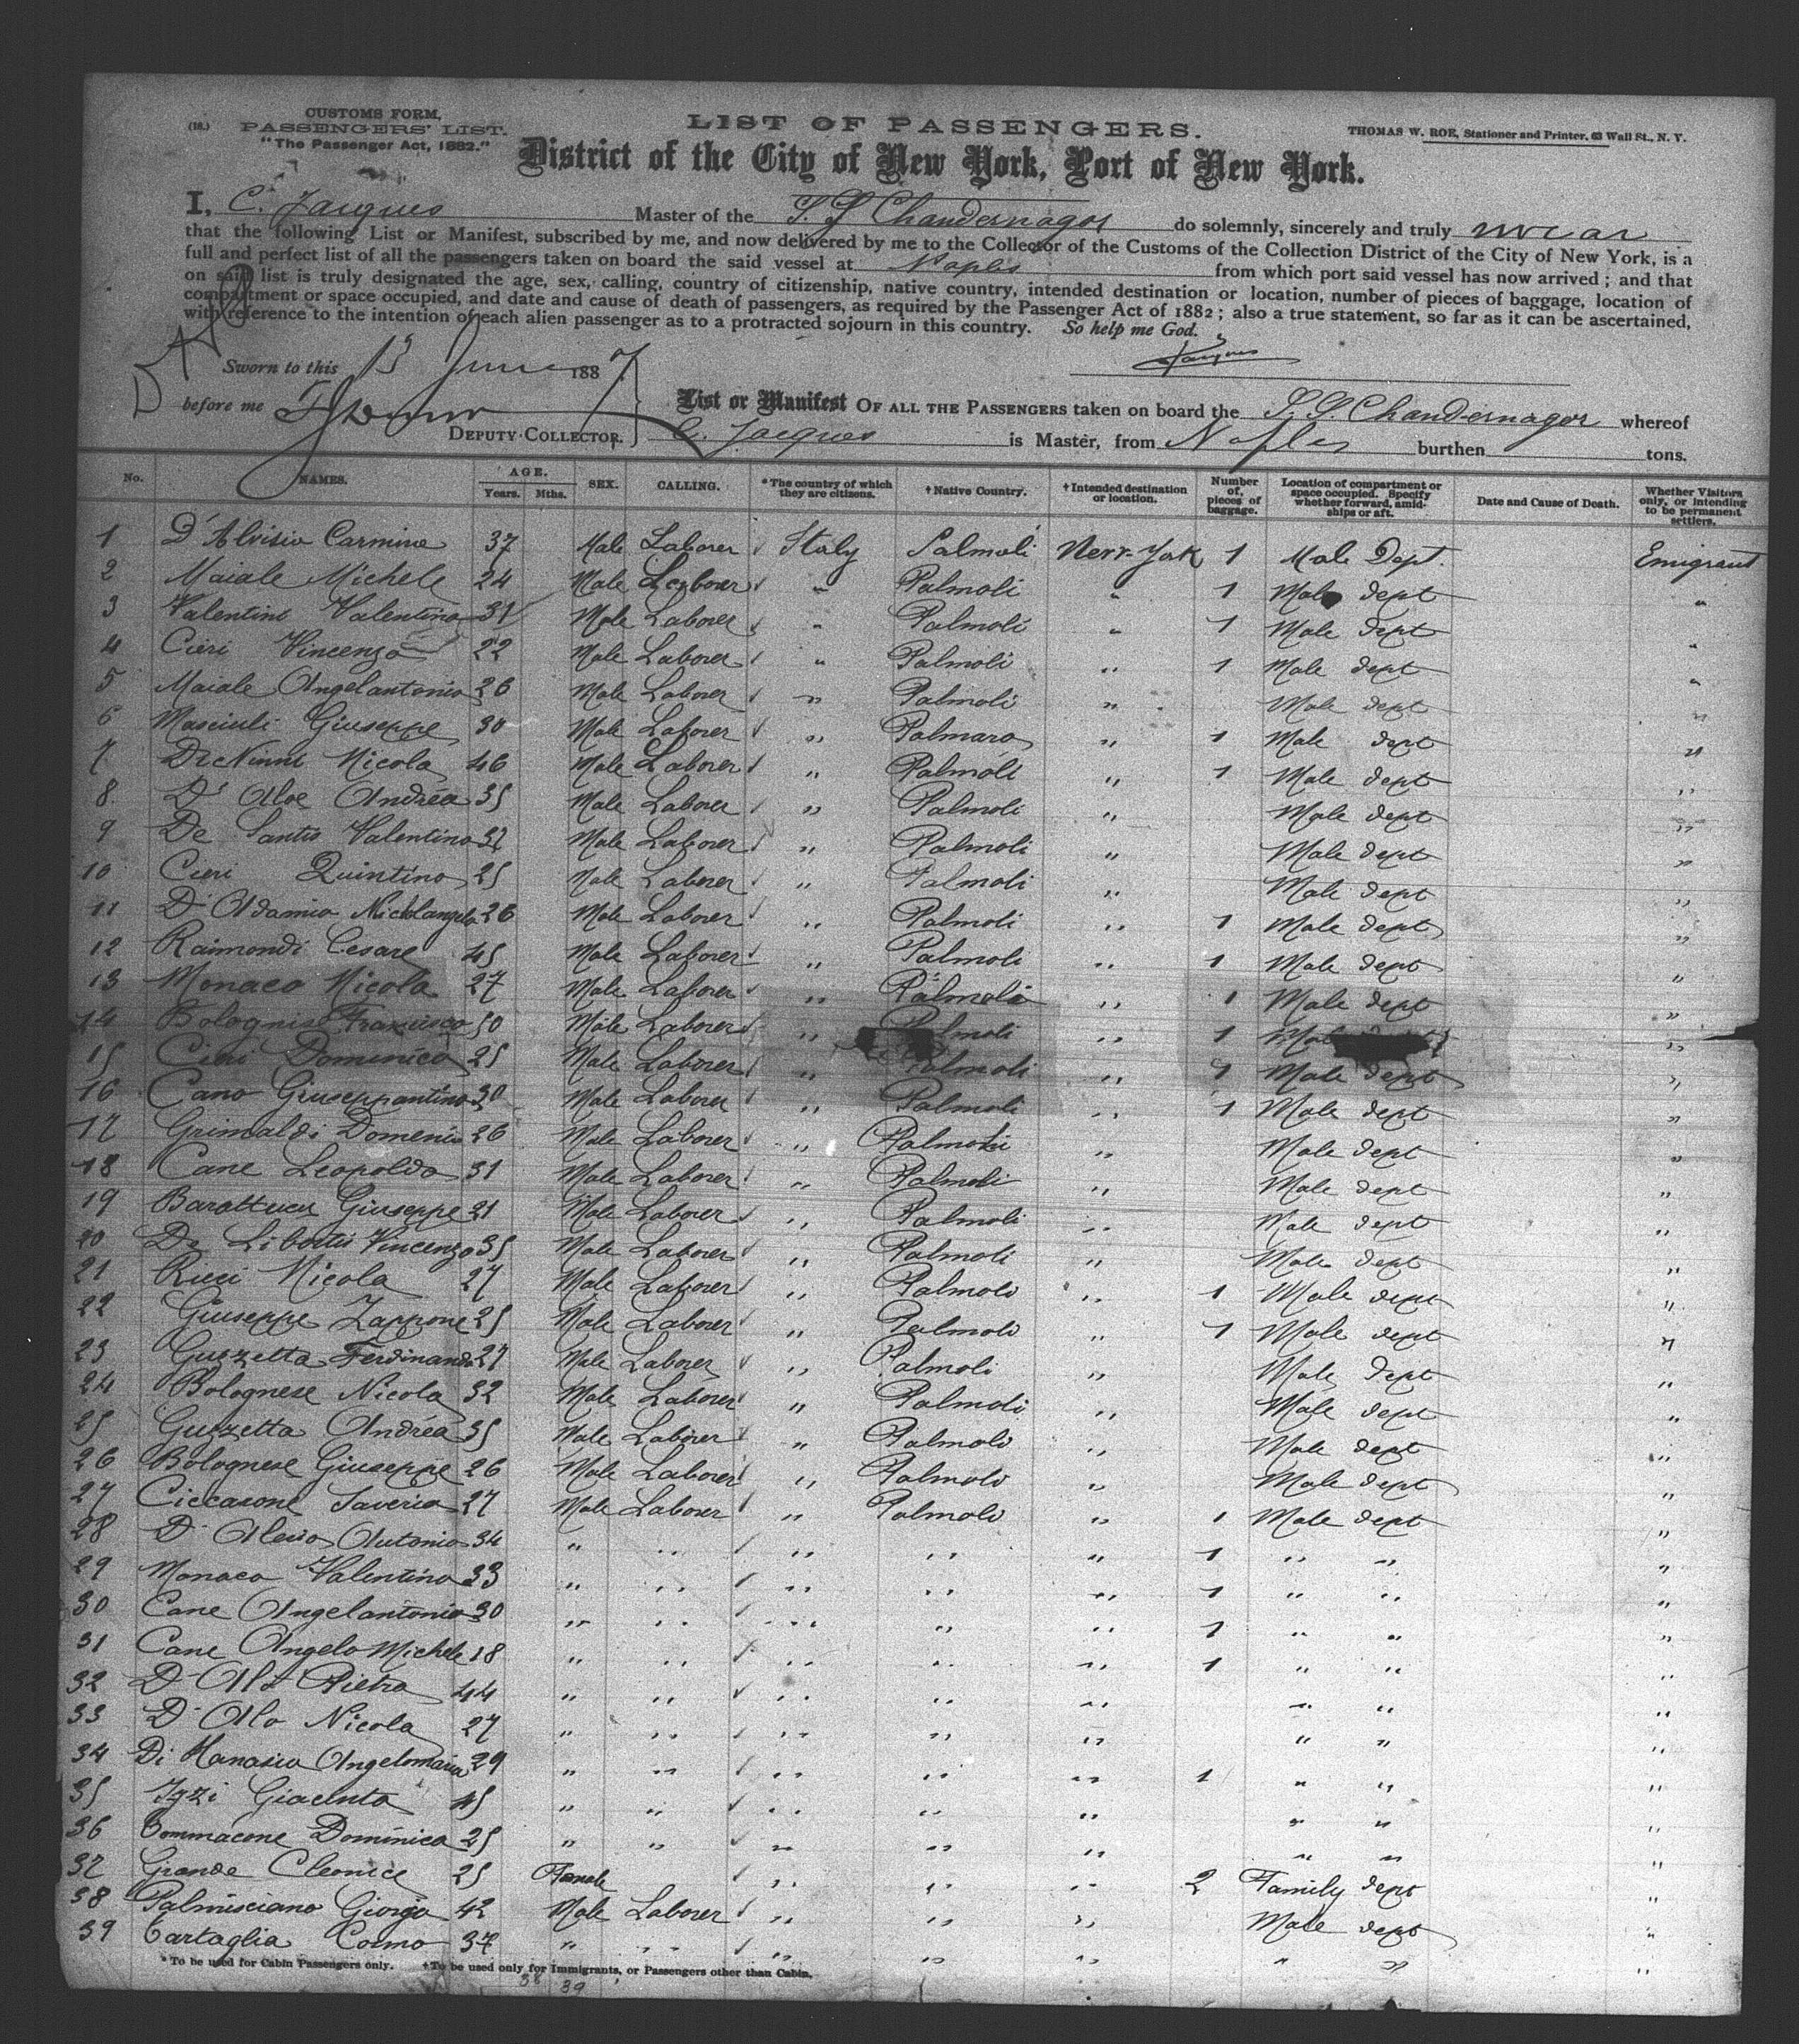 CUSTOMS FORM,
(18.) PASSENGERS' LIST.
"The Passenger Act, 1882."
LIST OF PASSENGERS.
THOMAS W. ROE, Stationer and Printer, 63 Wall St., N. Y.
District of the City of New York, Port of New York.
I, C. Jacques Master of the S. S Chandernagor do solemnly, sincerely and truly swear
that the following List or Manifest, subscribed by me, and now delivered by me to the Collector of the Customs of the Collection District of the City of New York, is a
full and perfect list of all the passengers taken on board the said vessel at Naples from which port said vessel has now arrived; and that
on said list is truly designated the age, sex, calling, country of citizenship, native country, intended destination or location, number of pieces of baggage, location of
compartment or space occupied, and date and cause of death of passengers, as required by the Passenger Act of 1882; also a true statement, so far as it can be ascertained,
with reference to the intention of each alien passenger as to a protracted sojourn in this country. So help me God.
Sworn to this 13 June 1887 Jacques
before me
DEPUTY COLLECTOR.
List or Manifest OF ALL THE PASSENGERS taken on board the S. S. Chandernagor whereof
C. Jacques is Master, from Naples burthen tons.
No. NAMES. AGE. Years. Mths. SEX. CALLING. * The country of which they are citizens. † Native Country. † Intended destination or location. Number of, pieces of baggage. Location of compartment or space occupied. Specify whether forward, amidships or aft. Date and Cause of Death. Whether Visitors only, or intending to be permanent settlers.
1 D'Alvisio Carmine 37 Male Laborer Italy Palmoli New-York 1 Male Dept. Emigrant
2 Maiale Michele 24 Male Laborer " Palmoli " 1 Male dept "
3 Valentini Valentino 31 Male Laborer " Palmoli " 1 Male dept "
4 Cieri Vincenzo 22 Male Laborer " Palmoli " 1 Male dept "
5 Maiale Angelantonio 26 Male Laborer " Palmoli " Male dept "
6 Masciuli Giuseppe 30 Male Laborer " Palmaro " 1 Male dept "
7 DeNinni Nicola 46 Male Laborer " Palmoli " 1 Male dept "
8 D'Aloe Andréa 35 Male Laborer " Palmoli " Male dept "
9 De Santis Valentino 32 Male Laborer " Palmoli " Male dept "
10 Cieri Quintino 25 Male Laborer " Palmoli " Male dept "
11 D'Adamio Nicolangelo 26 Male Laborer " Palmoli " 1 Male dept "
12 Raimondi Cesare 45 Male Laborer " Palmoli " 1 Male dept "
13 Monaco Nicola 27 Male Laborer " Palmoli " 1 Male dept "
14 Bolognise Francisco 50 Male Laborer " Palmoli " 1 "
15 Cieri Domenico 25 Male Laborer " Palmoli " 1 Male dept "
16 Cano Giuseppantino 30 Male Laborer " Palmoli " 1 Male dept "
17 Grimaldi Domenic 26 Male Laborer " Palmoli " Male dept "
18 Cane Leopoldo 31 Male Laborer " Palmoli " Male dept "
19 Barattucci Giuseppe 21 Male Laborer " Palmoli " Male dept "
20 De Libertis Vincenzo 35 Male Laborer " Palmoli " Male dept "
21 Ricci Nicola 27 Male Laborer " Palmoli " 1 Male dept "
22 Giuseppe Zappone 25 Male Laborer " Palmoli " 1 Male dept "
23 Guzzetta Ferdinando 27 Male Laborer " Palmoli " Male Dept "
24 Bolognese Nicola 32 Male Laborer " Palmoli " Male dept "
25 Guzzetta Andréa 35 Male Laborer " Palmoli " Male dept "
26 Bolognese Giuseppe 26 Male Laborer " Palmoli " Male dept "
27 Ciccarone Saverio 27 Male Laborer " Palmoli " 1 Male dept "
28 D'Alesio Antonio 34 " " " " " 1 " " "
29 Monaco Valentino 33 " " " " " 1 " " "
30 Cane Angelantonio 30 " " " " " 1 " " "
31 Cane Angelo Michele 18 " " " " " 1 " " "
32 D'Alo Pietro 44 " " " " " " " "
33 D'Alo Nicola 27 " " " " " " " "
34 Di Manasio Angelomaria 29 " " " " " 1 " " "
35 Izzi Giacinto 45 " " " " " " " "
36 Tommacone Dominico 25 " " " " " " " "
37 Grande Cleonice 25 Female " " " 2 Family dept "
38 Palmisciano Giorgio 42 Male Laborer " " " Male dept "
39 Tartaglia Cosmo 37 " " " " " " " "
* To be used for Cabin Passengers only. † To be used only for Immigrants, or Passengers other than Cabin.
38 39